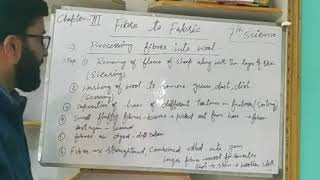 Chapter-III Fibre to Fabric 7th Science
Processing fibres into wool-
Step ① Removing of fleece of sheep along with thin layer of skin
(Shearing)
② Washing of wool to remove grease, dust, dirt
③ Separation of hair of different textures
④ Small fluffy fibres - burrs → picked out from hair →
⑤ fibres are dyed - diff colors
⑥ Fibres are straightened, combed rolled into yarn
longer fibres → wool for sweater